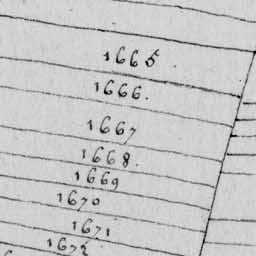 1665.
1666.
1667
1668.
1669
1670
1671
1672